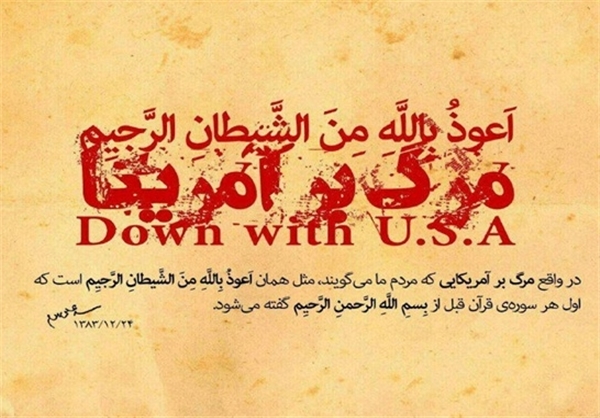 اَعوذُ بِاللَّهِ مِنَ الشَّیطانِ الرَّجیمِ
مرگ بر آمریکا
Down with U.S.A
در واقع مرگ بر آمریکایی که مردم ما می‌گویند، مثل همان اَعوذُ بِاللَّهِ مِنَ الشَّیطانِ الرَّجیمِ است که
اول هر سوره‌ی قرآن قبل از بِسمِ اللَّهِ الرَّحمنِ الرَّحیمِ گفته می‌شود.
۱۳۸۳/۱۲/۲۴